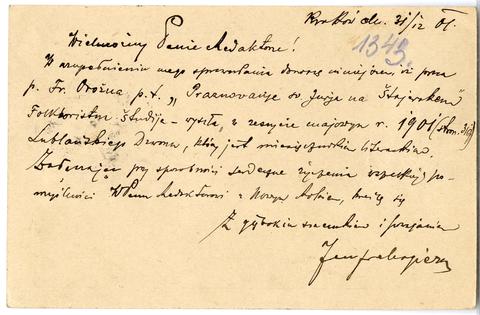 Kraków dn. 31/12 01.
1343
Wielmożny Panie Redaktorze!
W uzupełnieniu mego sprawozdania donoszę niniejszem, iż praca
p. Fr. Orožna p. t. „Praznovanje sv. Jurja na Štajerskem"
Folkloristna študija - wyszła w zeszycie majowym r. 1901 (stron.
Lublańskiego Dzvona, który jest miesięcznikiem literackim.
Załączając przy sposobności serdeczne życzenia wszelkiej po-
myślności WPanu Redaktorowi z Nowym Rokiem, kreślę się
Z głębokim szacunkiem i poważaniem
Jan